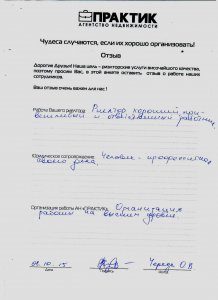 ПРАКТИК
АГЕНТСТВО НЕДВИЖИМОСТИ
Чудеса случаются, если их хорошо организовать!
Отзыв
Дорогие Друзья! Наша цель – риэлторские услуги высочайшего качества,
поэтому просим Вас, в этой анкете оставить отзыв о работе наших
сотрудников.
Ваш отзыв очень важен для нас!
Работа Вашего риэлтора: Риэлтор хороший при-
ветливый и ответственный работник.
Юридическое сопровождение: Человек - профессионал
своего дела.
Организация работы АН «ПРАКТИК»: Организация
работы на высшем уровне.
15
Дата
Подпись
О.В